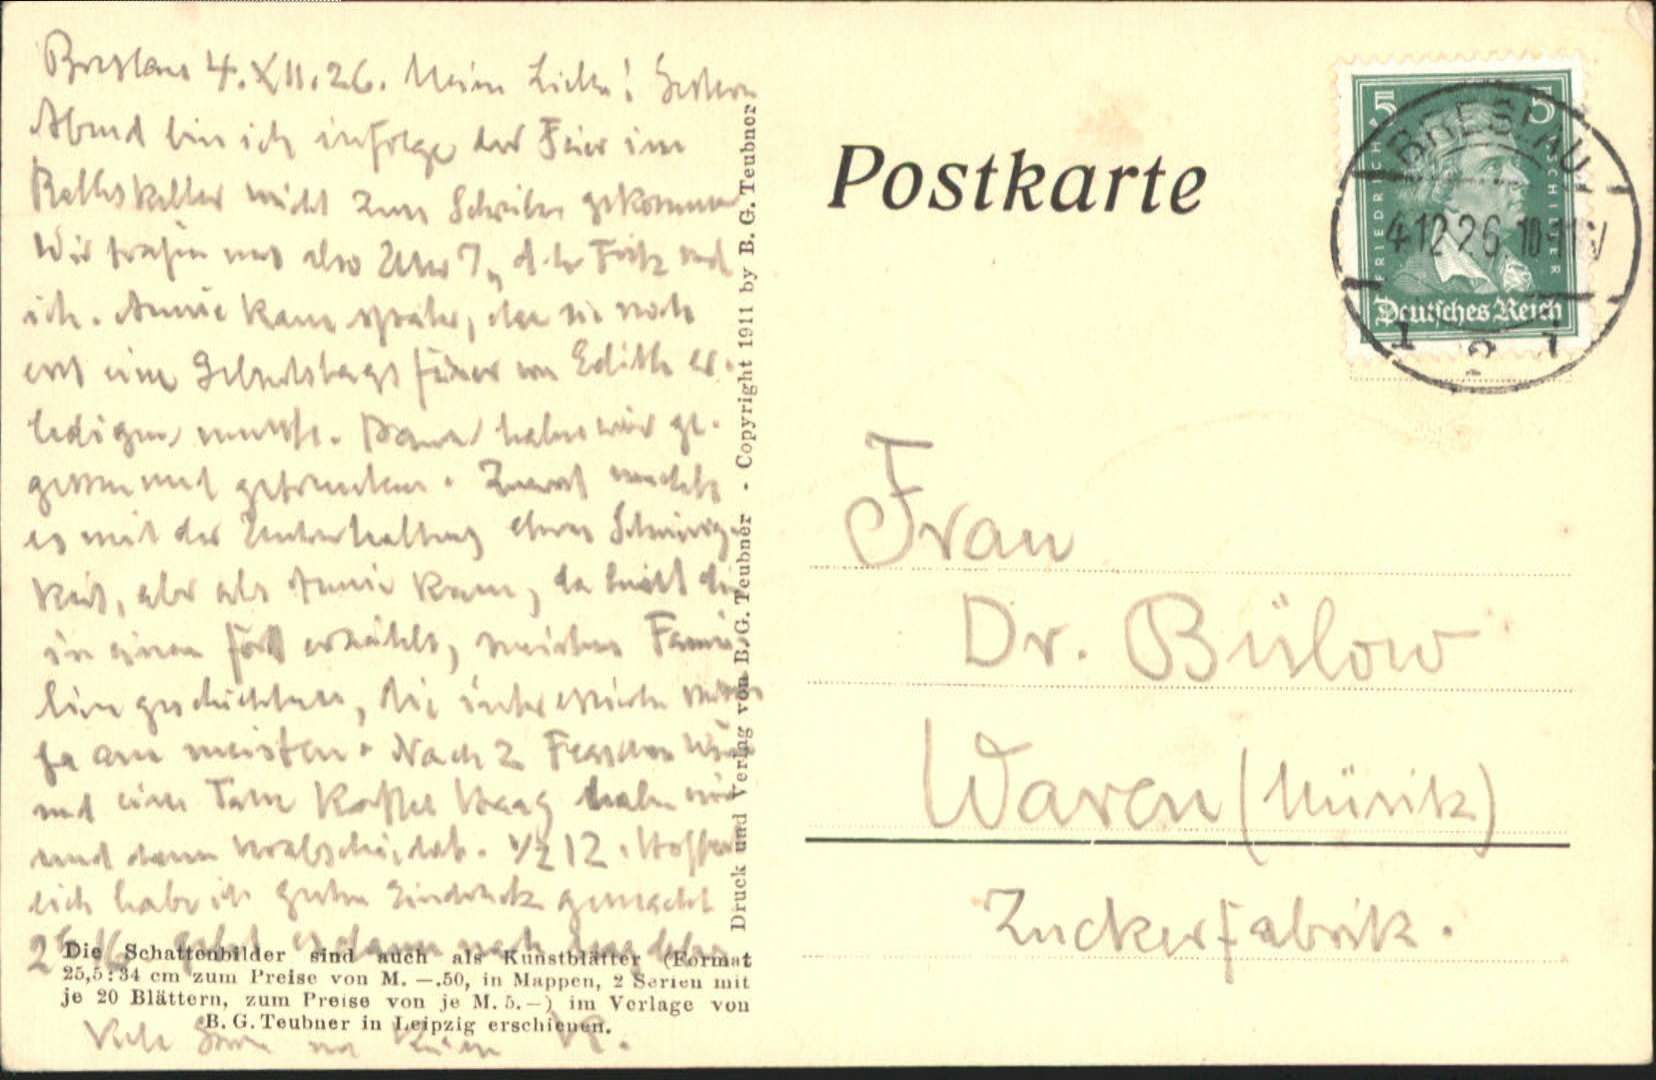 Breslau 4.XII.26. Meine Liebe! Gestern
Abend bin ich infolge der Feier im
Ratskeller nicht zum Schreiben gekommen
Wir trafen uns also Uhr 7, d. h. Fritz und
ich. Annie kam später, da sie noch
erst eine Geburtstagsfeier von Edith er-
ledigen musste. Dann haben wir ge-
gessen und getrunken. Zuerst machte
es mit der Unterhaltung etwas Schwierig-
keit, aber als Annie kam, da hat die
in einem fort erzählt, meistens Fami-
liengeschichten, die interessieren
ja am meisten. Nach 2 Flaschen
und eine Tasse Kaffee haben wir
uns dann verabschiedet. 1/2 12. Hoffent-
lich habe ich guten Eindruck gemacht
Viele
Postkarte
Druck und Verlag von B. G. Teubner - Copyright 1911 by B. G. Teubner
Die Schattenbilder sind auch als Kunstblätter (Format
25,5:34 cm zum Preise von M. —.50, in Mappen, 2 Serien mit
je 20 Blättern, zum Preise von je M. 5.—) im Verlage von
B. G. Teubner in Leipzig erschienen.
5 5
FRIEDRICH SCHILLER
Deutsches Reich
BRESLAU
4.12.26 10-11 V
Frau
Dr. Bülow
Waren (Müritz)
Zuckerfabrik.